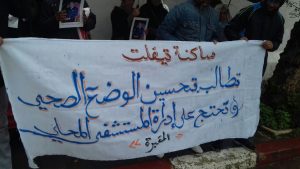 ساكنة تيفلت
تطالب بتحسين الوضع الصحي
وتحتج على إدارة المستشفى المحلي
>> المقبرة <<